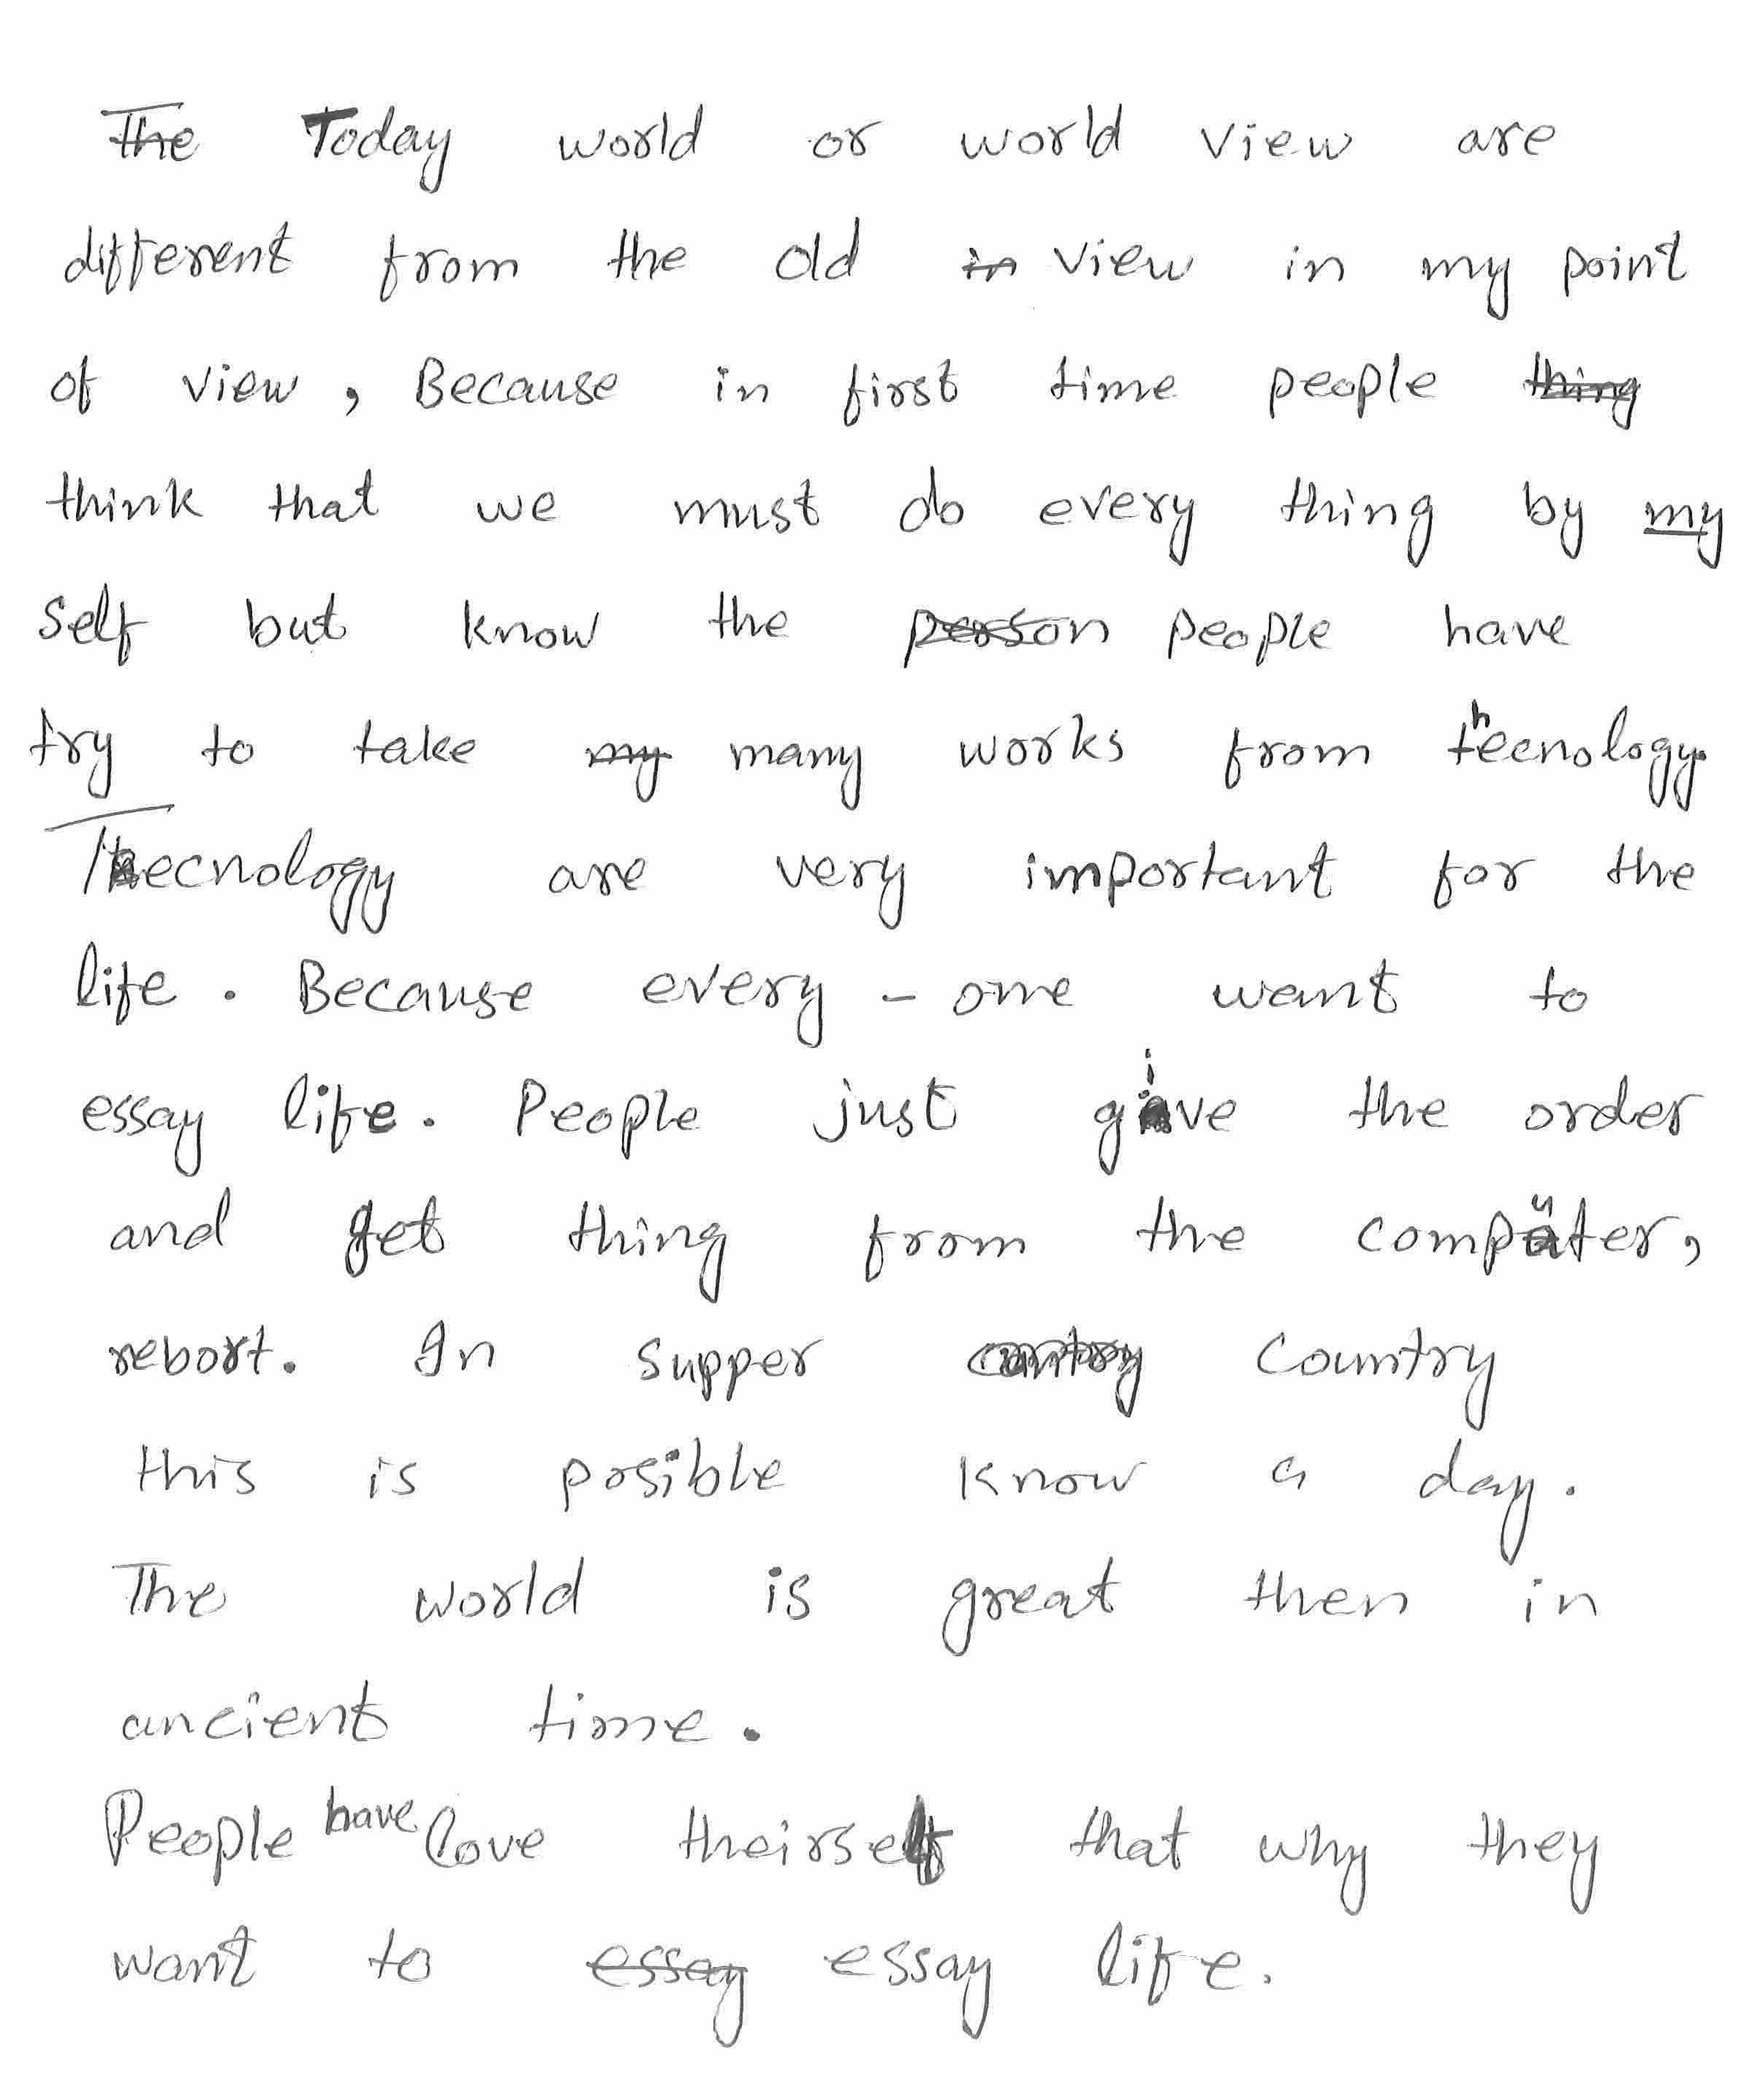 The Today world or world view are
different from the old in view in my point
of view, Because in first time people thing
think that we must do every thing by my
self but know the person people have
try to take my many works from thecnology.
Thecnology are very important for the
life. Because every-one want to
essay life. People just give the order
and get thing from the computer,
rebort. In supper cuntry country
this is posible know a day.
The world is great then in
ancient time.
People have love theirself that why they
want to essay essay life.